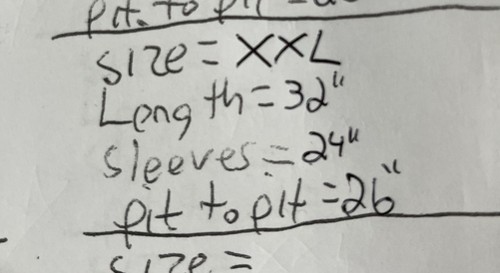 pit to pit =
size = XXL
Length = 32"
sleeves = 24"
pit to pit = 26"
size =